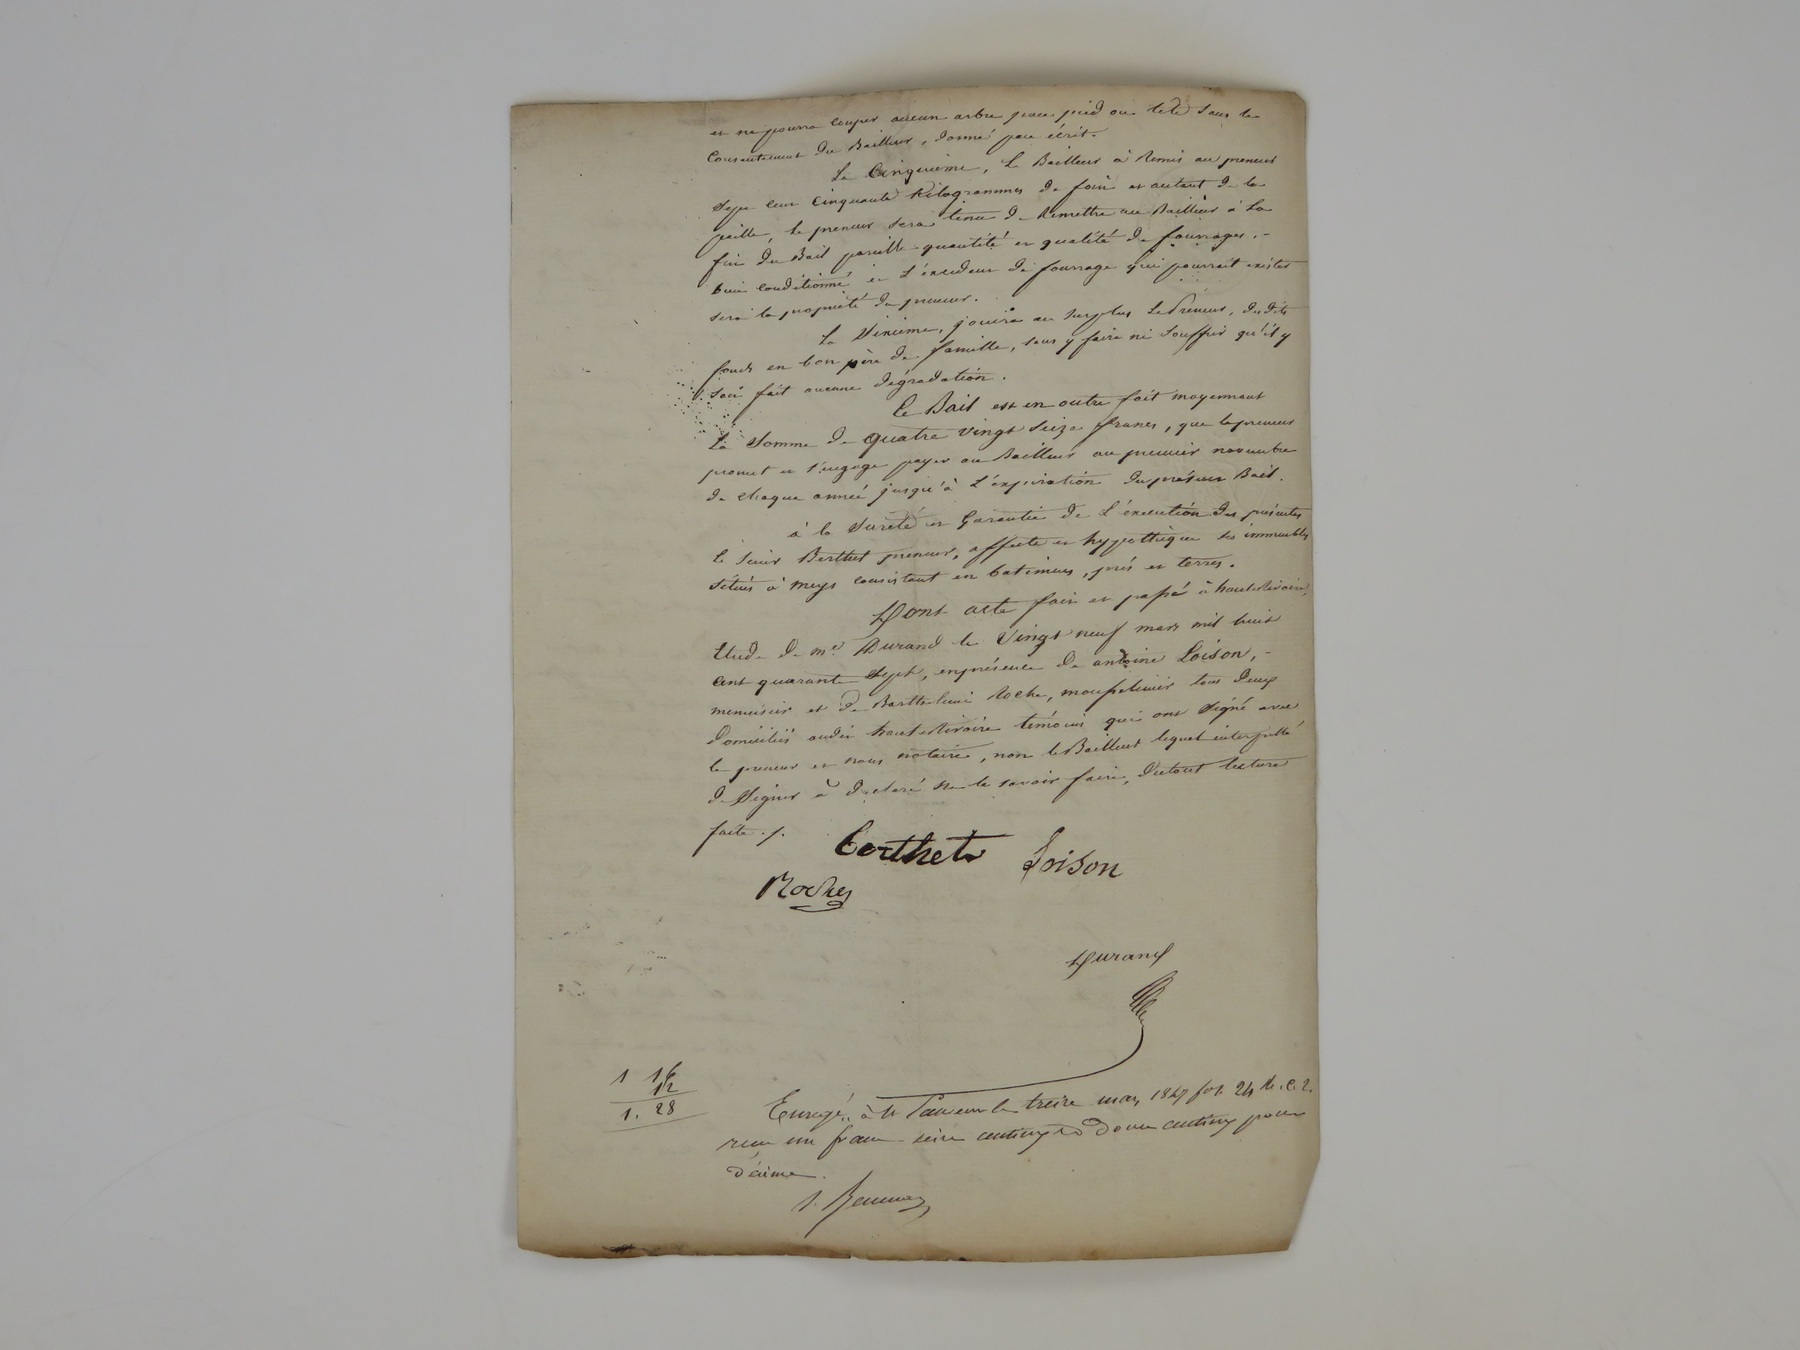 et ne pourra couper aucun arbre par pied ou tete sans le
Consentement du Bailleur, donné par écrit.
La Cinquième, Le Bailleur à Remis au preneur
Sept cent Cinquante Kilogrammes de foin et autant de la
paille, le preneur sera tenu de Remettre au Bailleur à la
fin du Bail pareille quantité et qualité de fourrages.-
bien conditionné et L'éxcédeur de fourrage qui pourrait exister
sera la propriété du preneur.
La Sixième, jouira au Surplus Le Preneur, desdits
fonds en bon père de famille, sans y faire ni Souffrir qu'il y
soit fait aucune dégradation.
Ce Bail est en outre fait moyennant
La Somme de quatre vingt Seize francs, que le preneur
promet et s'engage payer au Bailleur au premier novembre
de chaque année jusqu'à L'expiration du présent Bail.
à la Sureté et Garantie de L'éxécution des présentes
le sieur Berthet preneur, affecte et hypothèque ses immeubles
situés à meys consistant en batimens, prés et terres.
Dont acte fait et passé à hauterivoire,
Etude de me Durand le Vingt neuf mars mil huit
cent quarante Sept, en présence de antoine Loison,-
menuisier et de Barthelemi Roche, mouselinier tous deux
domiciliés audit hauterivoire témoins qui ont Signé avec
le preneur et nous notaire, non le Bailleur lequel interpellé
de Signer à déclaré ne le savoir faire, du tout lecture
faite ./.
Berthet Loison
Roche
Durand
1 16
12
1. 28
Enregé. à St Laurent le treize mars 1847 fol. 24 R. c. 2.
reçu un franc seize centimes et douze centimes pour
décime.